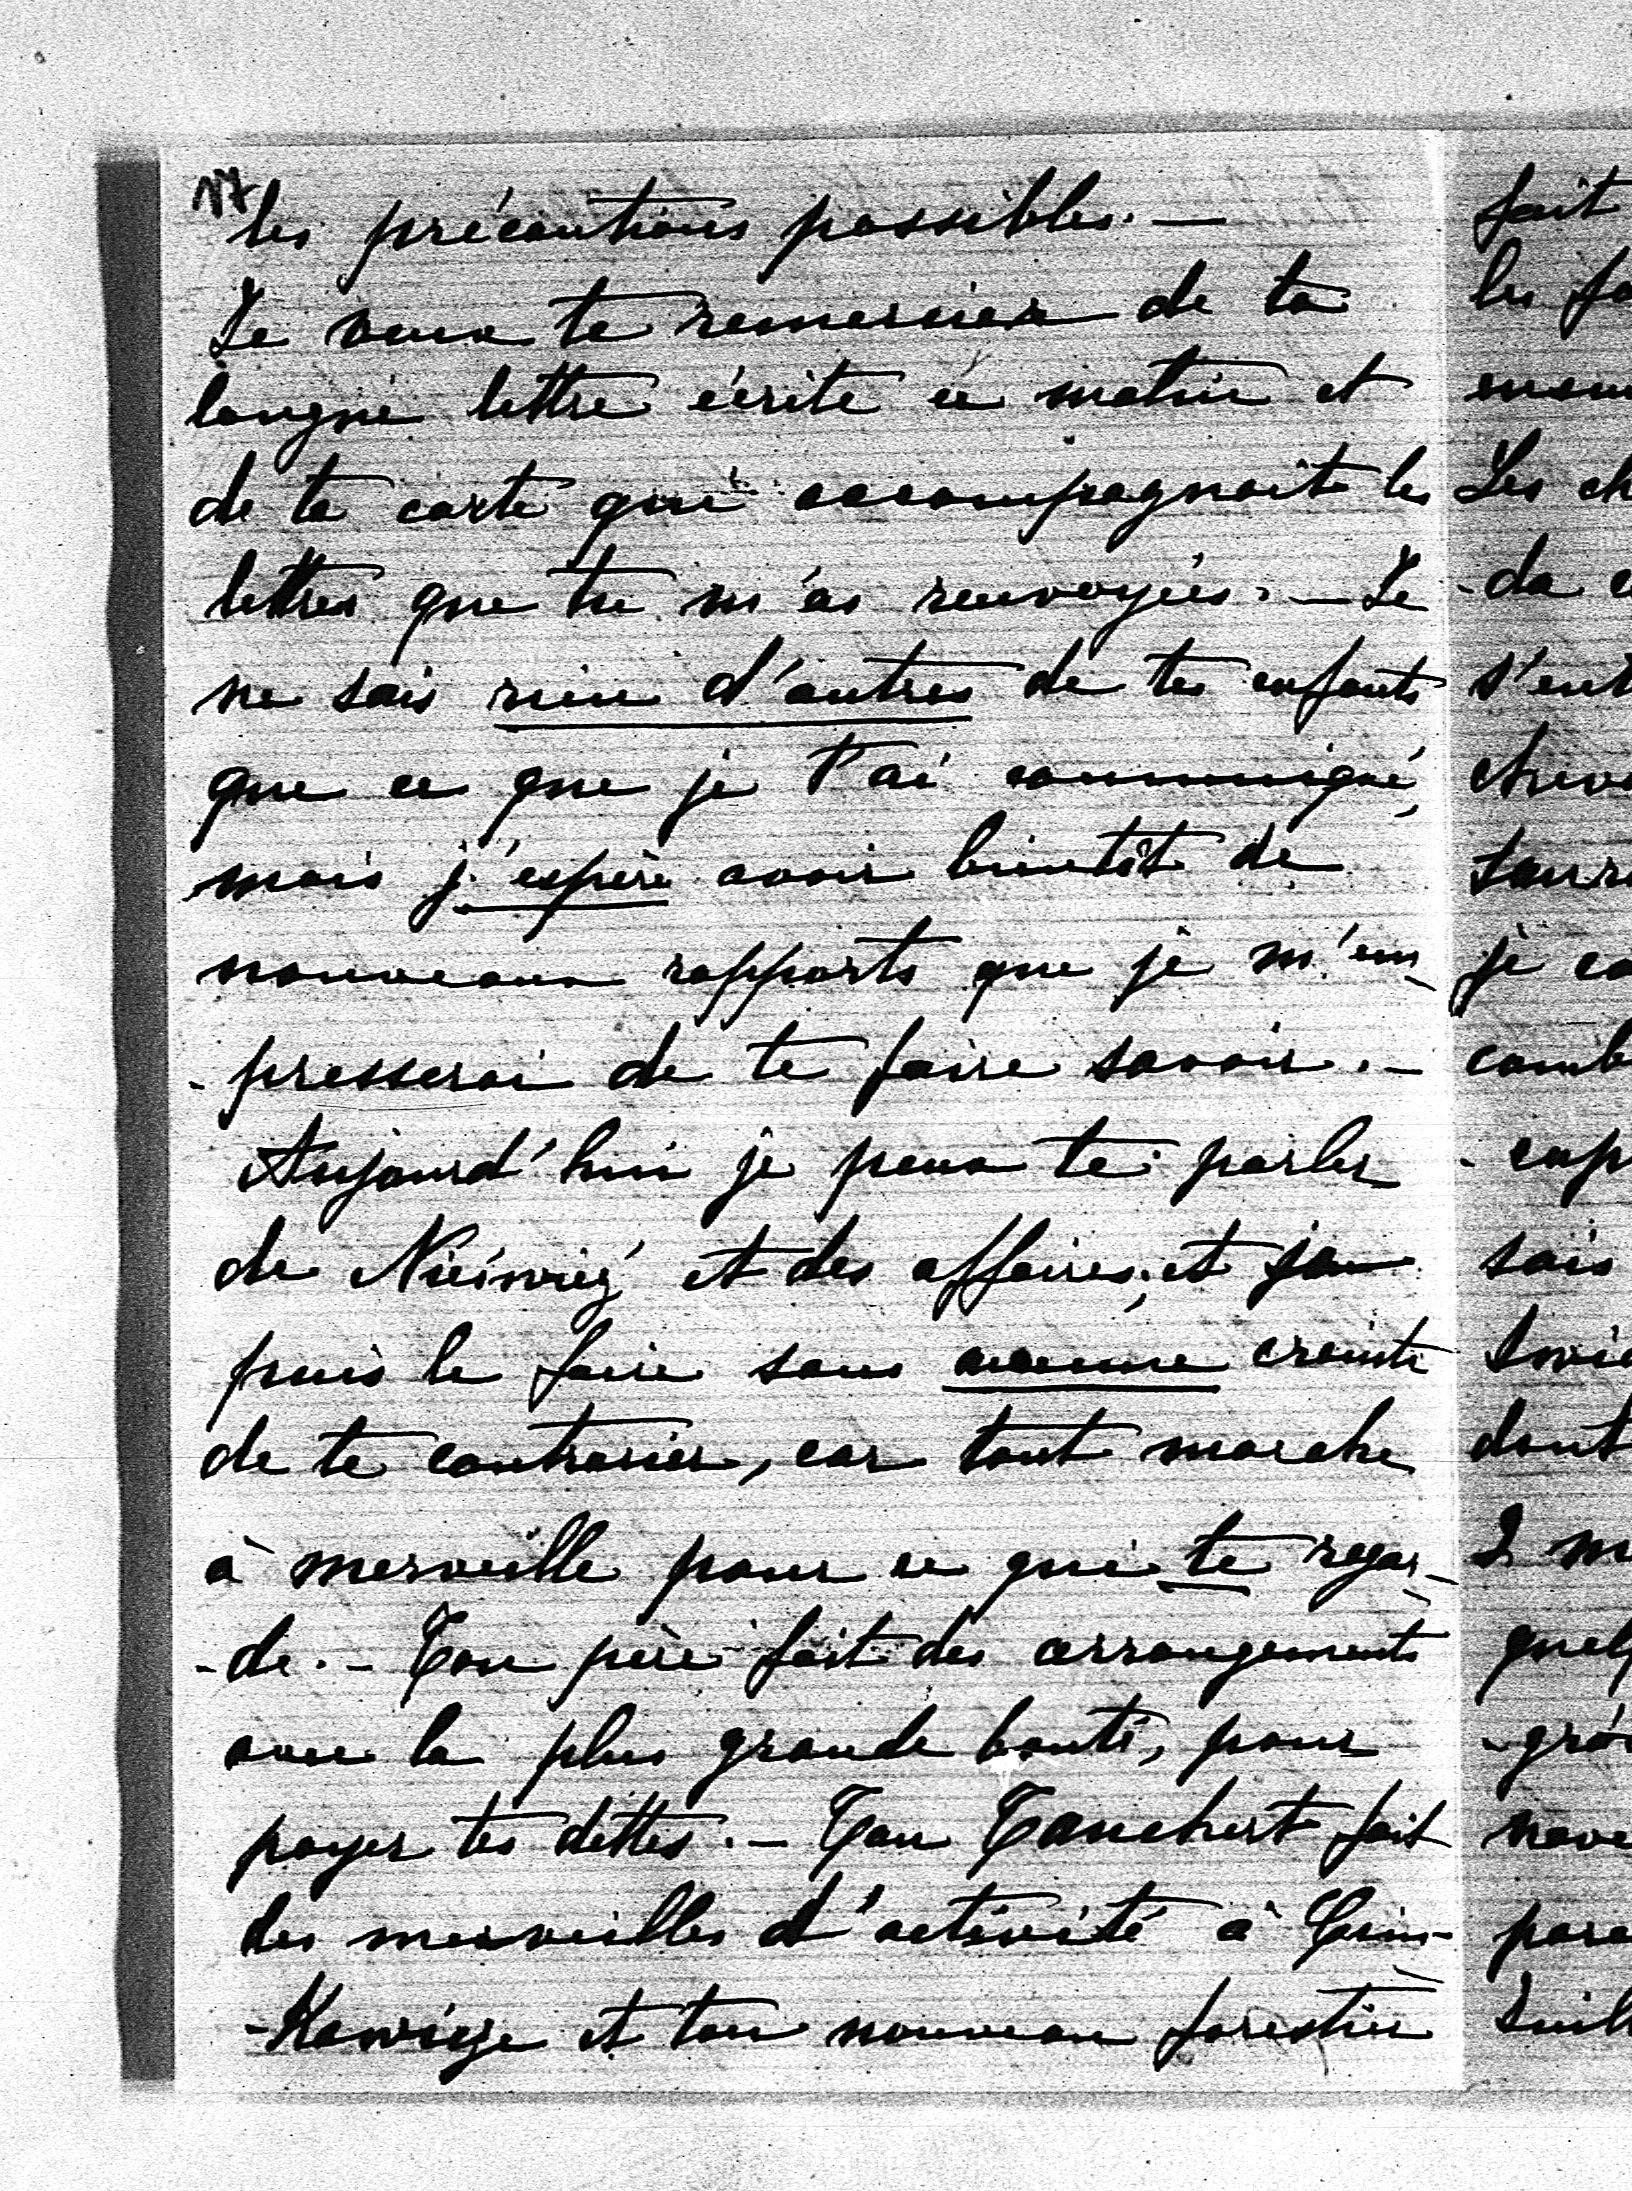 17
les précautions possibles. —
Je veux te remercier de ta
longue lettre écrite ce matin et
de ta carte qui accompagnait les
lettres que tu m'as renvoyées. — Je
ne sais rien d'autres de tes enfants
que ce que je t'ai communiqué,
mais j'espère avoir bientôt de
nouveaux rapports que je m'em-
-presserai de te faire savoir. —
Aujourd'hui je peux te parler
de Nieśwież et des affaires, et je
puis le faire sans aucune crainte
de te contrarier, car tout marche
à merveille pour ce qui te regar-
-de. — Ton père fait des arrangements
avec la plus grande bonté, pour
payer tes dettes. — Ton Tanchert fait
des merveilles d'activité à
et ton nouveau forestier
fait
les
Les
-da
je
sais
dont